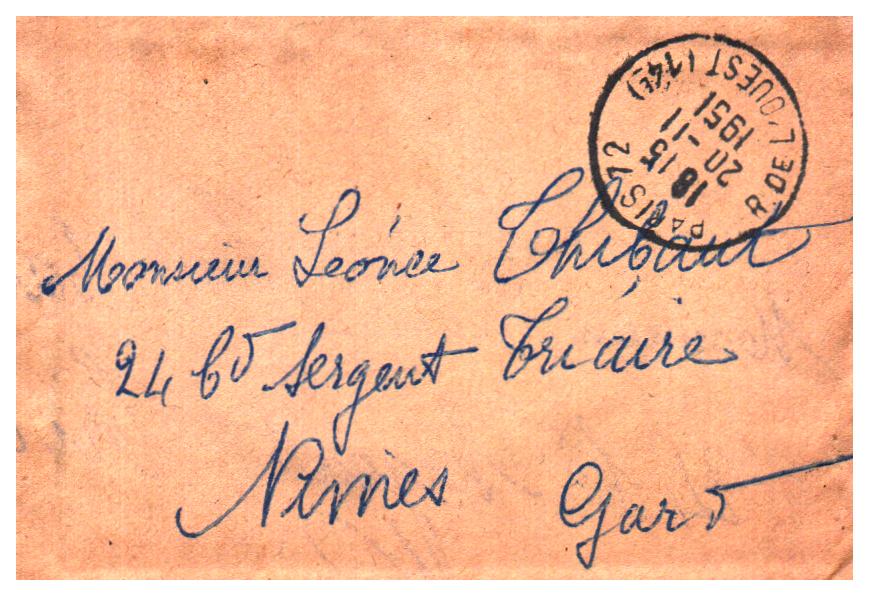 PARIS 72
R. DE L'OUEST (14E)
18 15
20 - 11
1951
Monsieur Léonce Thibaut
24 Bd Sergent Triaire
Nimes Gard